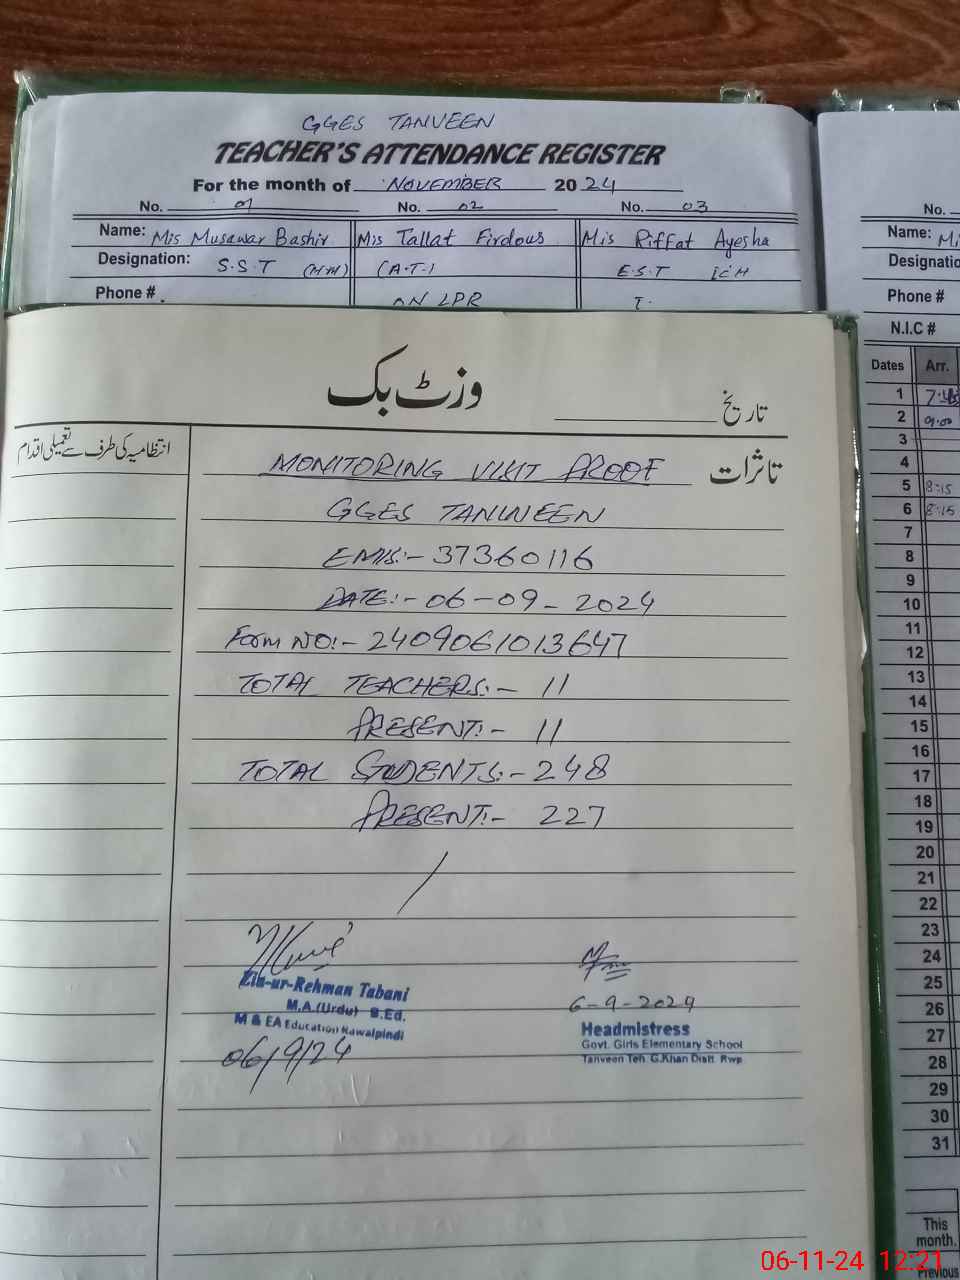 GGES TANVEEN
TEACHER'S ATTENDANCE REGISTER
For the month of NOVEMBER 2024
No. 01 No. 02 No. 03
Name: Mis Musawar Bashir Mis Tallat Firdous Mis Riffat Ayesha
Designation: S.S.T (A.T.) E.S.T
Phone # ON LPR
No.
Name:
Designatio
Phone #
N.I.C #
Dates Arr.
1
2 9:00
3
4
5 8:15
6 8:15
7
8
9
10
11
12
13
14
15
16
17
18
19
20
21
22
23
24
25
26
27
28
29
30
31
This
month.
Previous
وزٹ بک
تاریخ
انتظامیہ کی طرف سے تعمیلی اقدام
تاثرات
MONITORING VISIT PROOF
GGES TANVEEN
EMIS:- 37360116
DATE:- 06-09-2024
Form NO:- 2409061013647
TOTAL TEACHERS:- 11
PRESENT:- 11
TOTAL STUDENTS:- 248
PRESENT:- 227
Zia-ur-Rehman Tabani
M.A.(Urdu) B.Ed.
M & EA Education Rawalpindi
06/9/24
6-9-2024
Headmistress
Govt. Girls Elementary School
Tanveen Teh. G.Khan Distt. Rwp
06-11-24 12:21